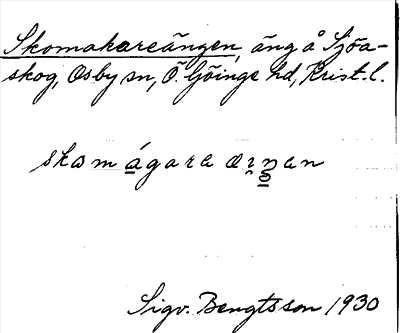 Skomakareängen, äng å Sjöa-
skog, Osby sn, Ö. Göinge hd, Krist. l.
skom ágara
Sigv. Bengtsson 1930